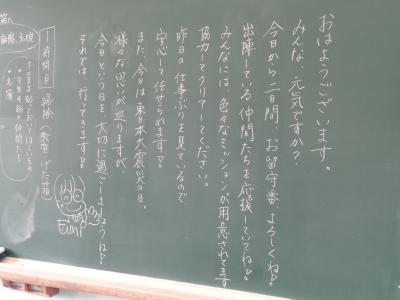 おはようございます。
みんな、元気ですか?
今日から二日間、お留守番よろしくね♪
出陣している仲間たちを応援していてね♪
みんなには、色々なミッションが用意されてます
協力してクリアーしてください。
昨日の仕事ぶりを見ているので
安心して任せられます♡
また、今日は東日本大震災の日。
様々な思いが巡りますが、
今日という日を大切に過ごしましょうね♪
それでは、行ってきます!
1時間目 掃除(教室・げた箱)